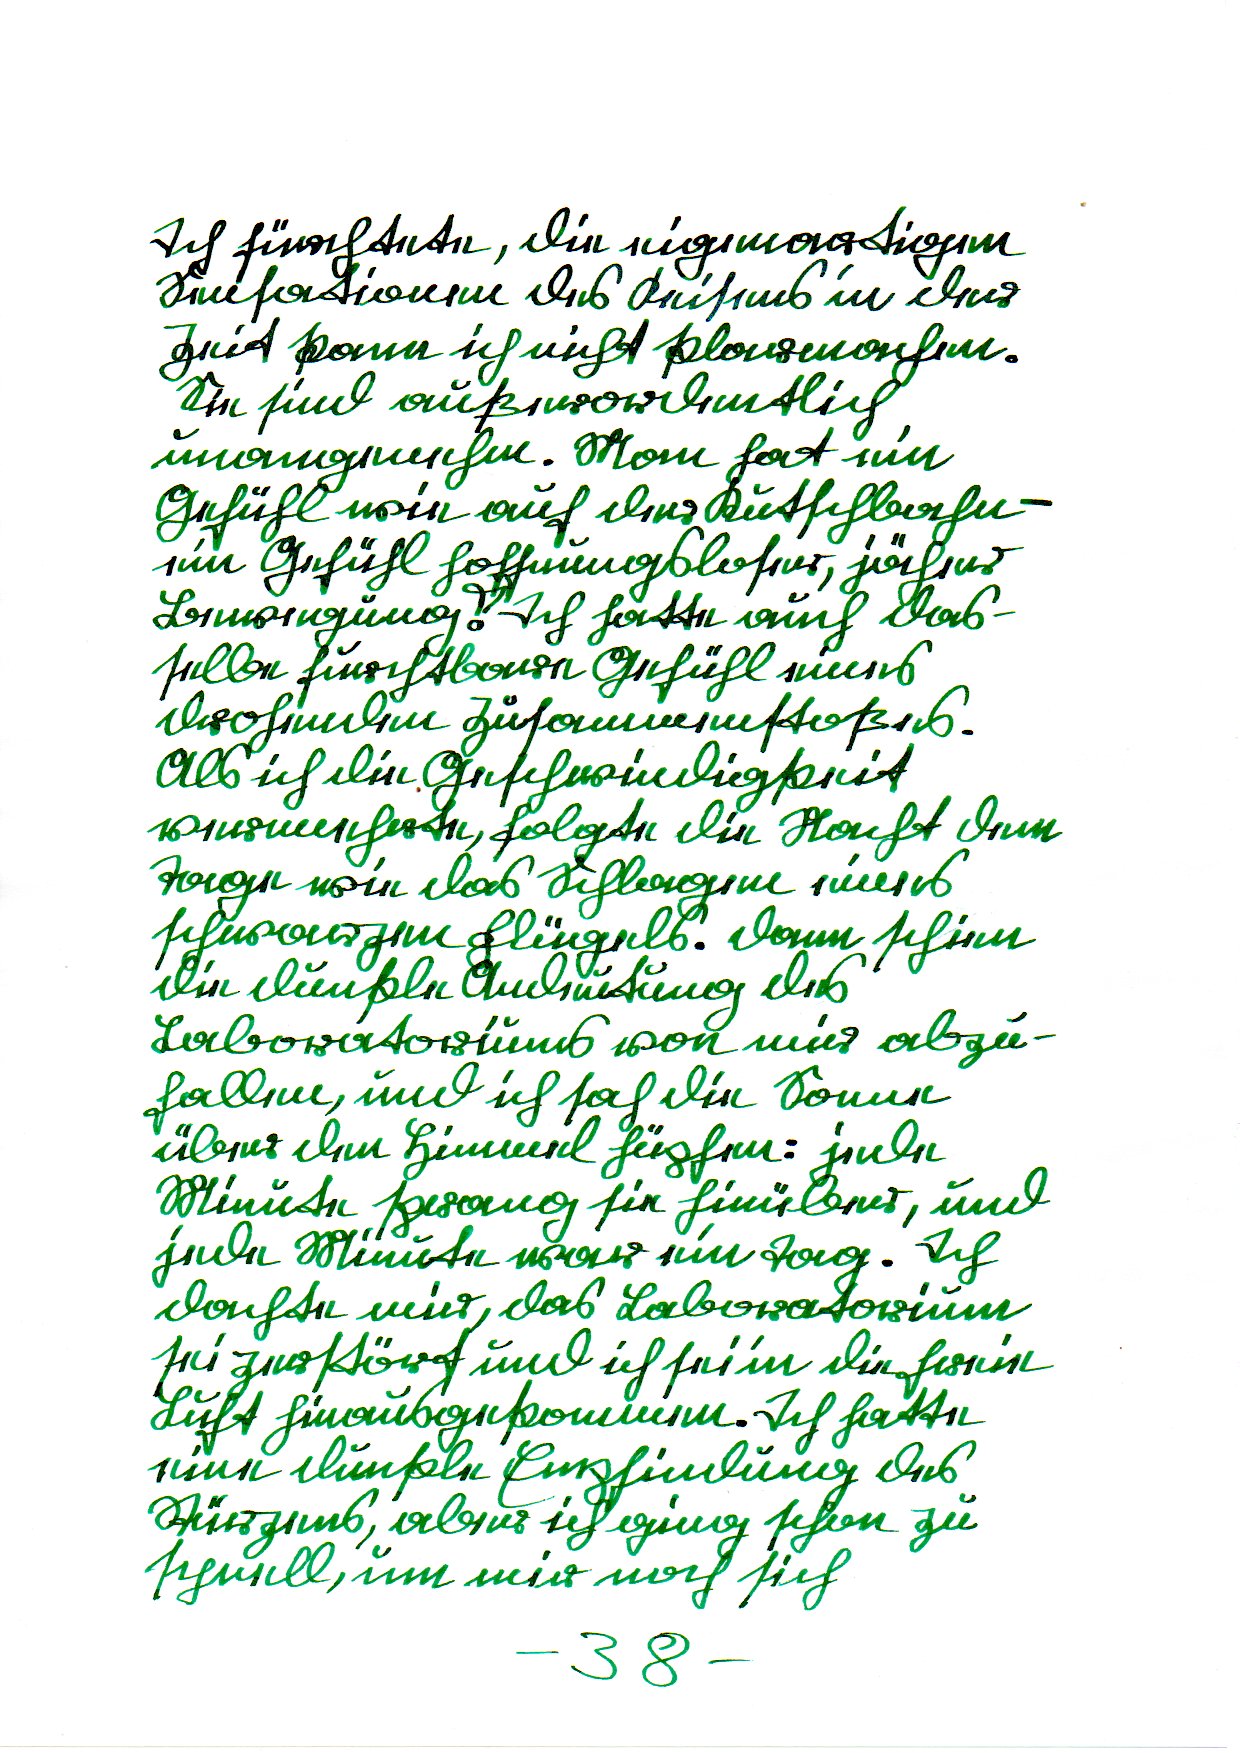 Ich fürchte, die eigenartigen
Sensationen des Reisens in der
Zeit kann ich nicht klarmachen.
Sie sind außerordentlich
unangenehm. Man hat ein
Gefühl wie auf der Rutschbahn –
ein Gefühl hoffnungsloser, jäher
Bewegung! Ich hatte auch das-
selbe furchtbare Gefühl eines
drohenden Zusammenstoßes.
Als ich die Geschwindigkeit
vermehrte, folgte die Nacht dem
Tage wie das Schlagen eines
schwarzen Flügels. Dann schien
die dunkle Andeutung des
Laboratoriums von mir abzu-
fallen, und ich sah die Sonne
über den Himmel hüpfen: jede
Minute sprang sie hinüber, und
jede Minute war ein Tag. Ich
dachte mir, das Laboratorium
sei zerstört und ich sei in die freie
Luft hinausgekommen. Ich hatte
eine dunkle Empfindung des
Stürzens, aber ich ging schon zu
schnell, um mir noch sich
- 38 -